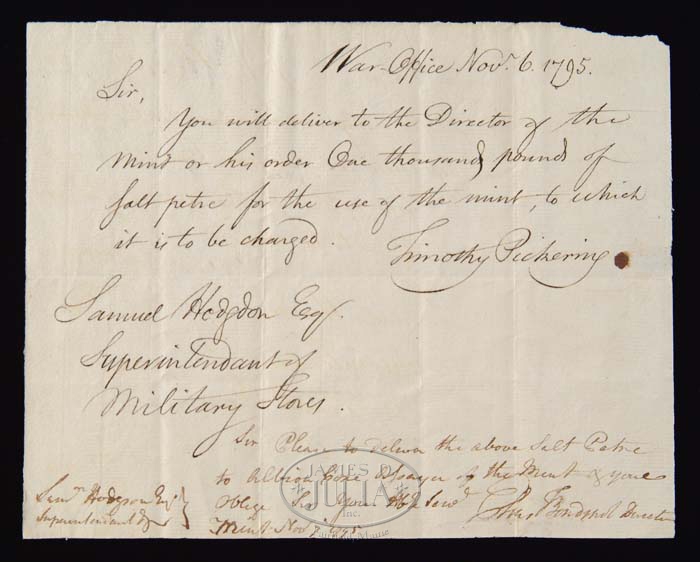 War-Office Nov.r 6. 1795.
Sir,
You will deliver to the Director of the
Mint or his order One thousand pounds of
Salt petre for the use of the mint, to which
it is to be charged.
Timothy Pickering
Samuel Hodgdon Esq.
Superintendant of
Military Stores.
Sir Please to deliver the above Salt Petre
to Albion Coxe Assayer of the Mint & you'l
oblige Sir your Hble Serv.t
Elias Boudinot Director
Mint Nov.r 7 1795
Sam.l Hodgdon Esq.
Superintendant &
JAMES D.
JULIA
Inc.